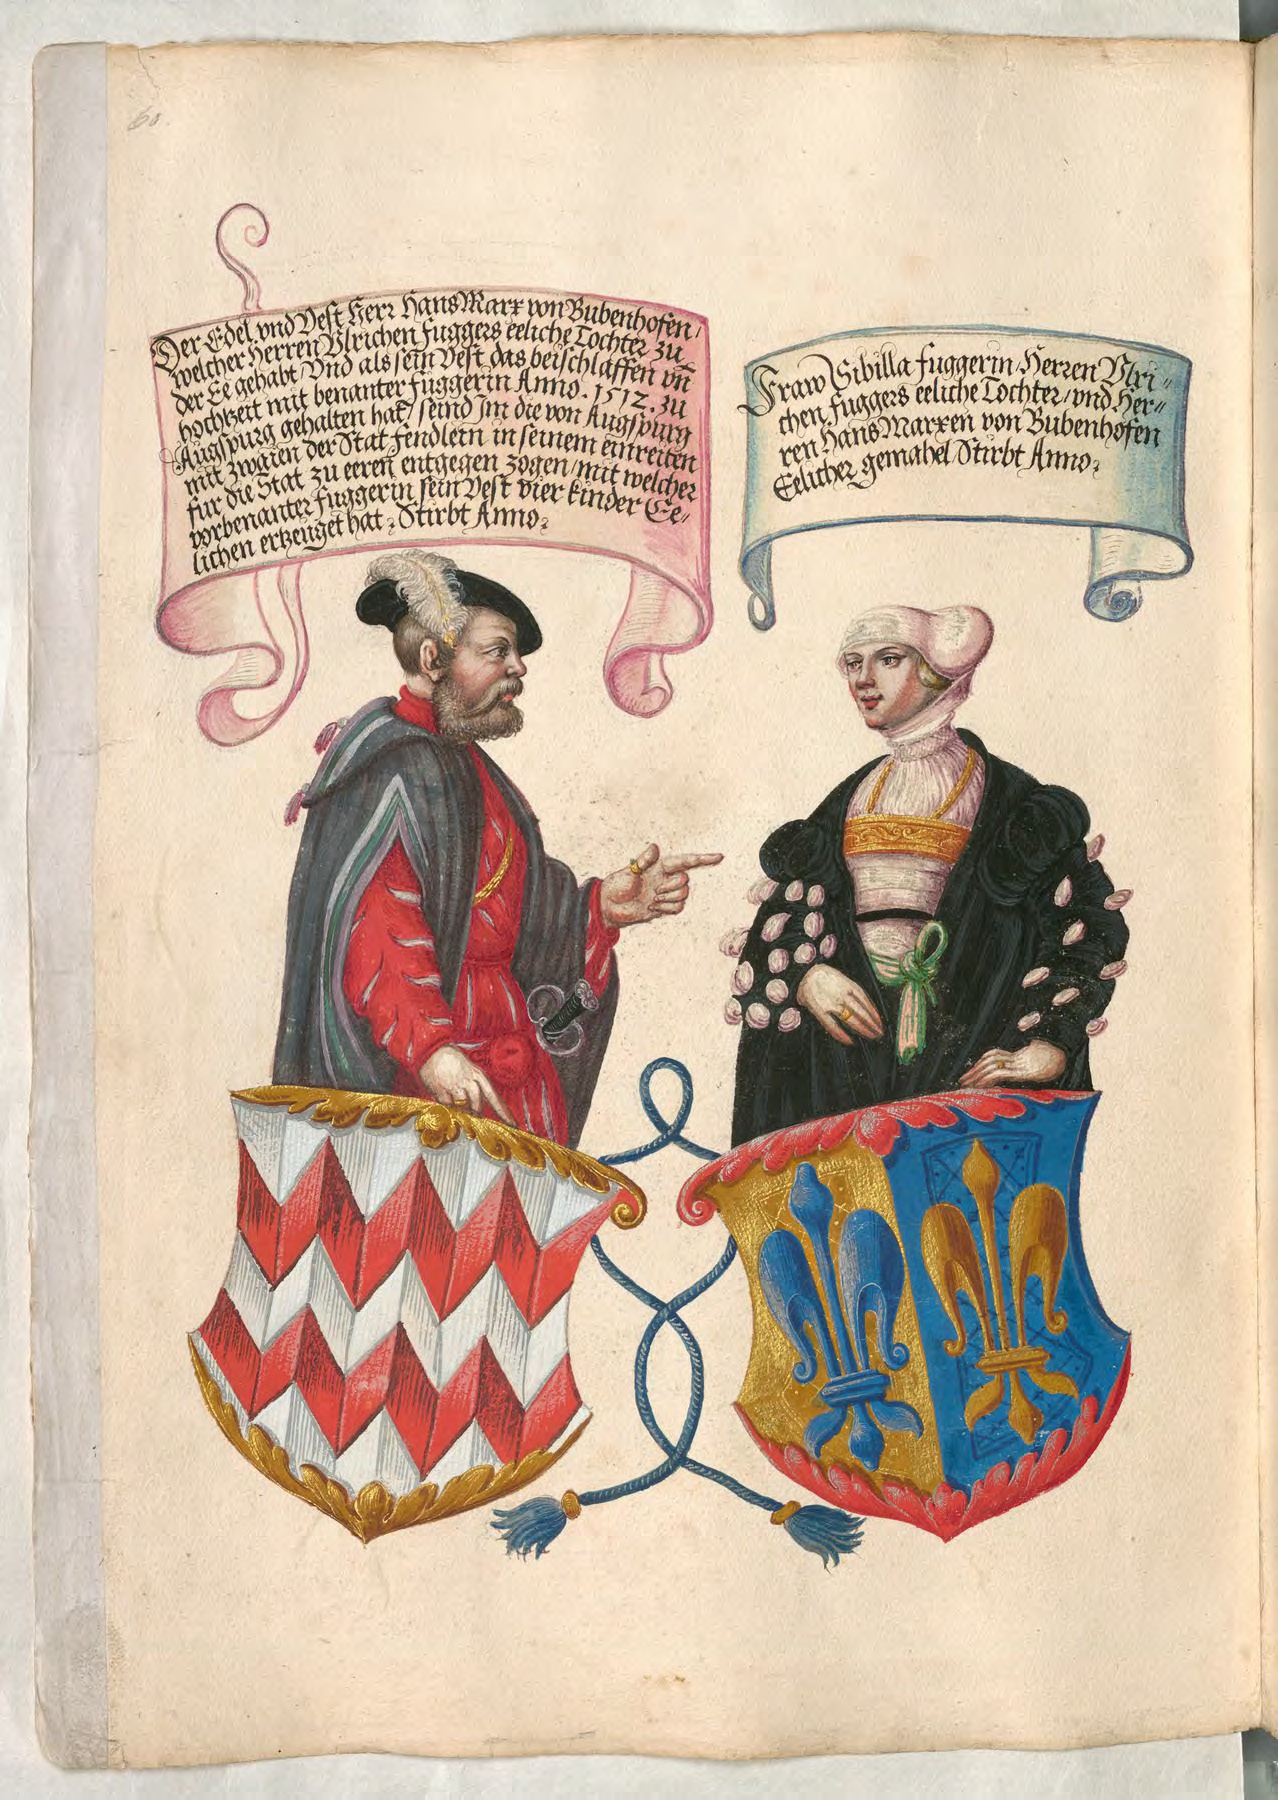 60.
Der Edel vnd Vest Herr Hans Marx von Bubenhofen/
welcher Herren Vlrichen Fuggers eeliche Tochter zu
der Ee gehabt/ Vnd als sein Vest das beischlaffen vn̄
hochtzeit mit benanter Fuggerin Anno. 1512. zu
Augspurg gehalten hat/ seind Im die von Augspurg
mit zwaien der Stat fendlein in seinem einreiten
für die Stat zu eeren entgegen zogen/ mit welcher
vorbenanter Fuggerin sein Vest vier kinder Ee⸗
lichen ertzeuget hat. Stirbt Anno.
Fraw Sibilla Fuggerin Herren Vlri⸗
chen Fuggers eeliche Tochter/ vnd Her⸗
ren Hans Marxen von Bubenhofen
Eelicher gemahel Stirbt Anno.